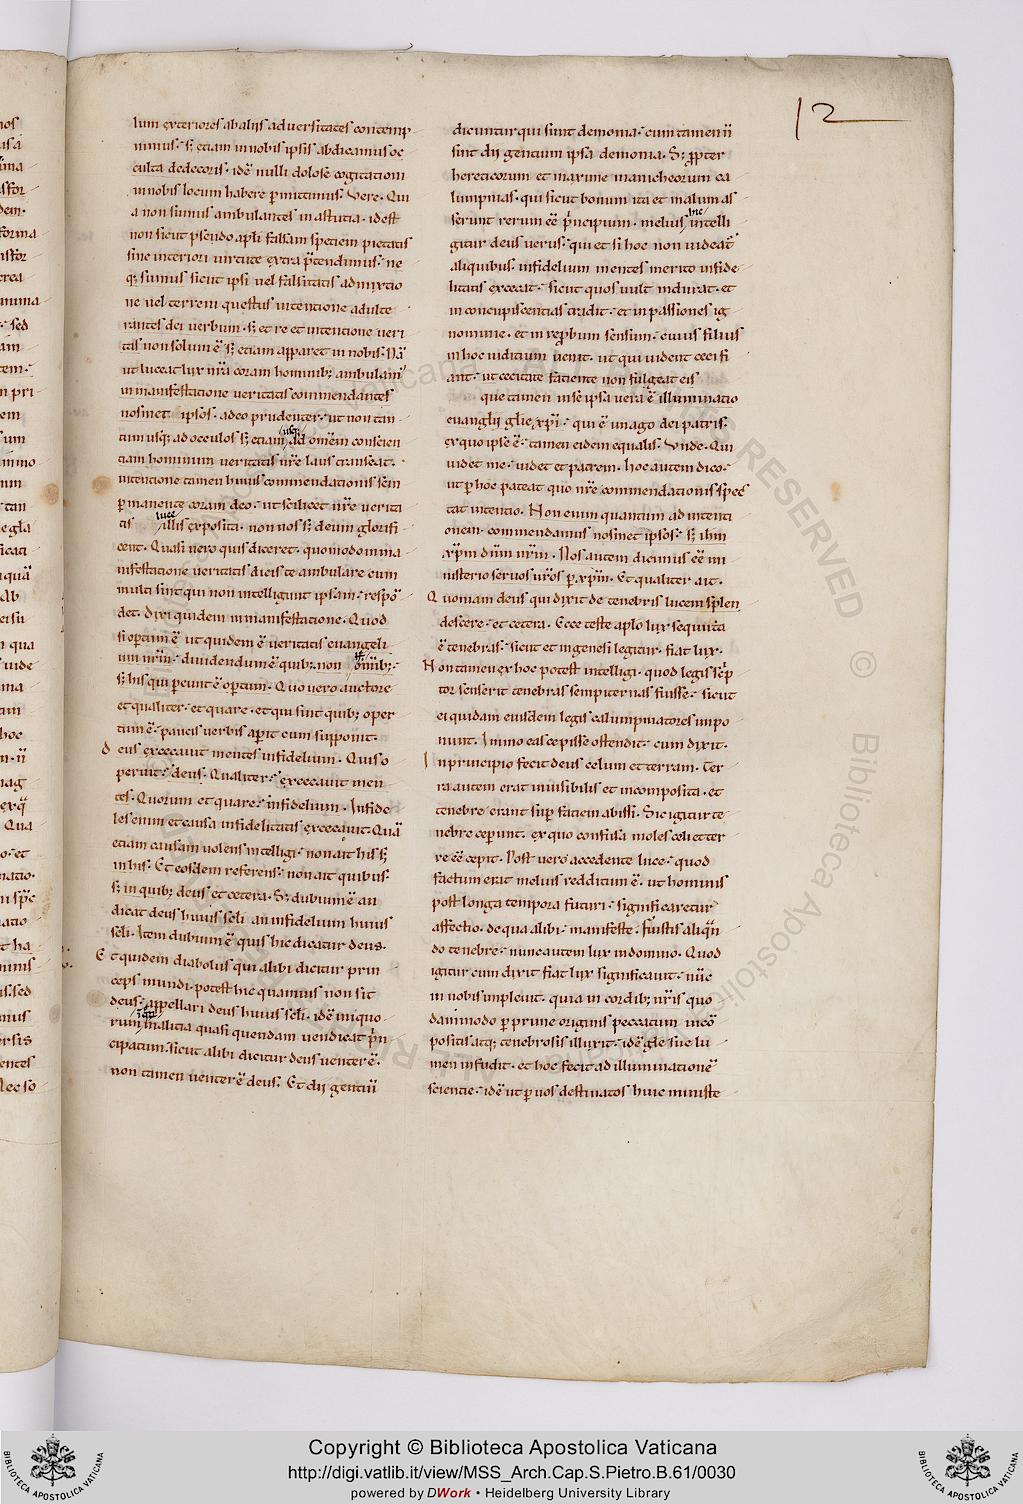 12
lum exteriores ab aliis adversitates contemp
nimus. s; etiam in nobis ipsis abdicamus oc
culta dedecoris. idē nulli dolose cogitationi
in nobis locum habere p̱mittimus. Vere. Qui
a non sumus ambulantes in astutia. idest
non sicut pseudo apli falsam speciem pietatis
sine interiori virtute extra p̄tendimus. ne
q; sumus sicut ipsi vel falsitatis admixtio
ne vel terreni questus intentione adulte
rantes dei verbum. s; et re et intentione veri
tatis non solum ē s; etiam apparet in nobis. Nā
ut luceat lux nr̄a coram hominib; ambulam'
in manifestatione veritatis commendantes
nosmet ipsos. adeo prudenter. ut non tan
tum usq; ad occulos s; etiam usq; ad omēm conscien
tiam hominum veritatis nr̄e laus transeat.
intentione tamen huius commendationis sem
p̱ manente coram deo. ut scilicet nr̄e verita
tis luce illis exposita. non nos s; deum glorifi
cent. Quasi vero quis diceret. quomodo in ma
nifestatione veritatis dicis te ambulare cum
multi sint qui non intelligunt ipsam. respō
det. Dixi quidem in manifestatione. Quod
si op̱tum ē ut quidem ē veritatis evangeli
um nr̄m. dividendum ē quib; non omīb;.
s; his qui p̱eunt ē op̱tum. Quo vero auctore
et qualiter. et quare. et qui sint quib; oper
tum ē. paucis verbis ap̱it cum supponit.
Deus excecavit mentes infidelium. Quis o
peruit. deus. Qualiter. excecavit men
tes. Quorum et quare. infidelium. Infide
les enim et causa infidelitatis excecavit. Quā
etiam causam volens intelligi. non ait his s;
in his. Et eosdem referens. non ait quibus.
s; in quib; deus et cetera. S; dubium ē an
dicat deus huius scl̄i an infidelium huius
scl̄i. Item dubium ē quis hic dicatur deus.
Et quidem diabolus qui alibi dicitur prin
ceps mundi. potest hic quamvis non sit
deus. appellari deus huius scl̄i. idē iniquo
rum malitia quasi quendam vendicat p̄n
cipatum. sicut alibi dicitur deus venter ē.
non tamen venter ē deus. Et dii gentiū
dicuntur qui sunt demonia. cum tamen n̄
sint dii gentium ipsa demonia. S; p̱pter
hereticorum et maxime manicheorum ca
lumpnias. qui sicut bonum ita et malum as
serunt rerum eē p̄ncipium. melius hic intelli
gitur deus verus. qui et si hoc non videat'
aliquibus. infidelium mentes merito infide
litatis excecat. sicut quos vult indurat. et
in concupiscentias tradit. et in passiones ig
nominie. et in rep̱bum sensum. cuius filius
in hoc iuditium venit. ut qui vident ceci fi
ant. ut cecitate faciente non fulgeat eis
que tamen in se ipsa vera ē illuminatio
evanglii glīe xp̄i. qui ē imago dei patris.
ex quo ipse ē. tamen eidem equalis. Unde. Qui
videt me. videt et patrem. hoc autem dico.
ut p̱ hoc pateat quo nr̄e commendationis spec
tat intentio. Non enim quantum ad intenti
onem. commendamus nosmet ipsos. s; ihm
xp̄m dn̄m nr̄m. Nos autem dicimus eē mi
nisterio servos vr̄os p̱ xp̄m. Et qualiter ait.
Quoniam deus qui dixit de tenebris lucem splen
descere. et cetera. Ecce teste aplo lux sequuta
ē tenebras. sicut et in genesi legitur. fiat lux.
Non tamen ex hoc potest intelligi. quod legis sc̄p
tor senserit tenebras sempiternas fuisse. sicut
ei quidam eiusdem legis calumpniatores impo
nunt. Immo eas cepisse ostendit. cum dixit.
In principio fecit deus celum et terram. Ter
ra autem erat invisibilis et incomposita. et
tenebre erant sup̱ faciem abissi. Sic igitur te
nebre cep̱unt. ex quo confusa moles celi et ter
re eē cepit. Post vero accedente luce. quod
factum erat melius redditum ē. ut hominis
post longa tempora futuri. significaretur
affectio. de qua alibi. manifeste. fuistis aliqn̄
do tenebre. nunc autem lux in domino. Quod
igitur cum dixit fiat lux significavit. nūc
in nobis implevit. quia in cordib; nr̄is quo
dammodo p̱ prime originis peccatum incō
positis atq; tenebrosis illuxit. idē glē sue lu
men infudit. et hoc fecit ad illuminationē
scientie. idē ut p̱ vos destinatos huic ministe
Copyright © Biblioteca Apostolica Vaticana
http://digi.vatlib.it/view/MSS_Arch.Cap.S.Pietro.B.61/0030
powered by DWork • Heidelberg University Library